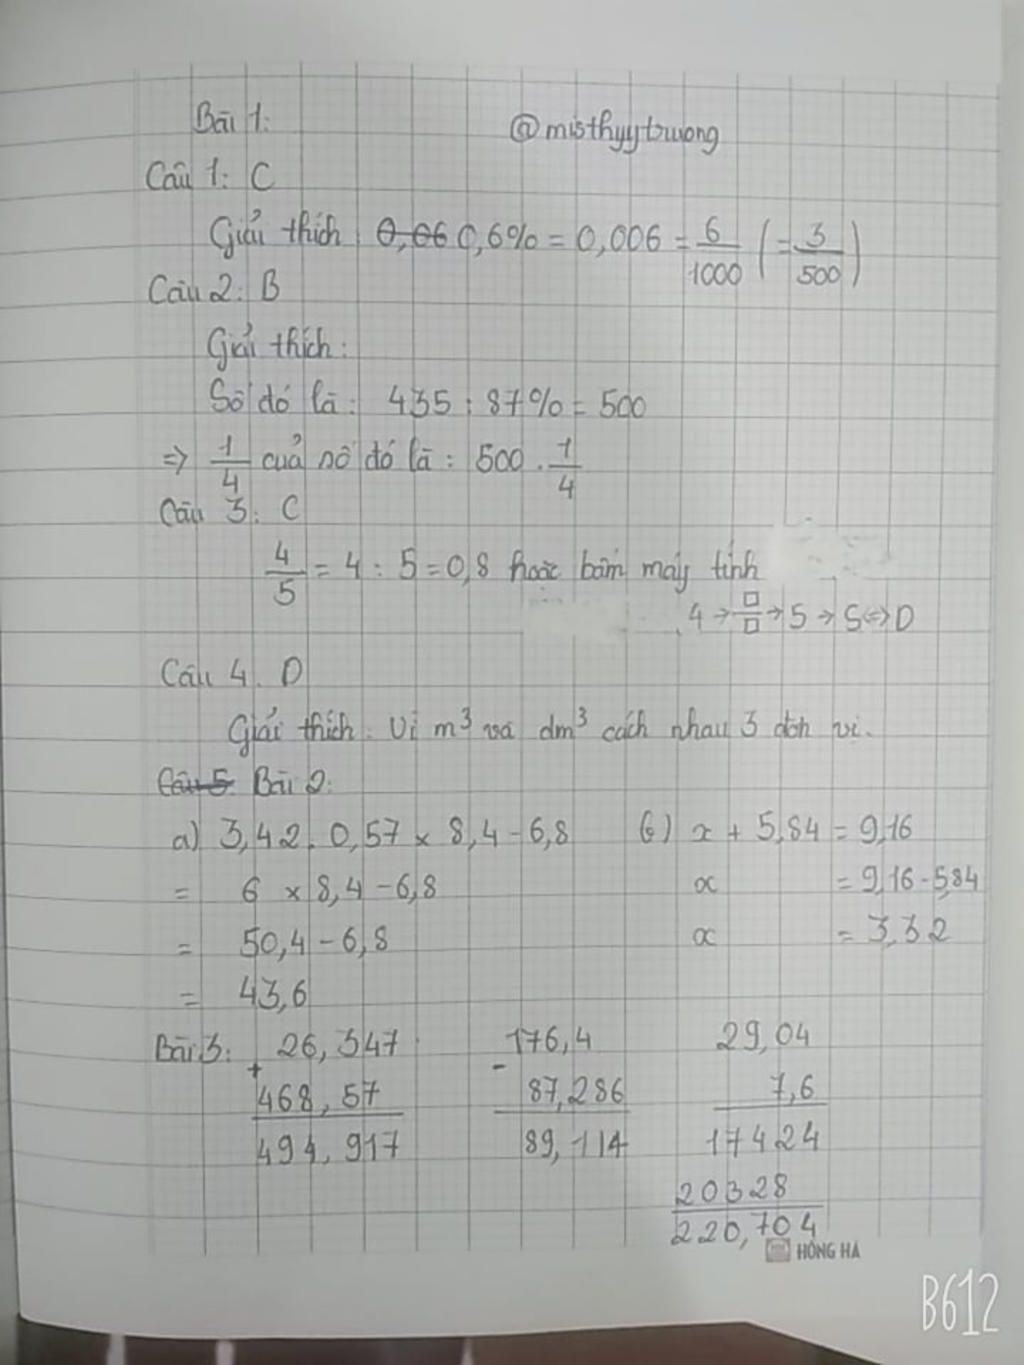 Bài 1:
@misthyytrwong
Câu 1: C
Giải thích: 0,06 0,6% = 0,006 = 6/1000 ( = 3/500 )
Câu 2: B
Giải thích:
Số đó là: 435 : 87% = 500
=> 1/4 của số đó là: 500 . 1/4
Câu 3: C
4/5 = 4 : 5 = 0,8 hoặc bấm máy tính
4 → □/□ → 5 → S⇔D
Câu 4. D
Giải thích: Vì m³ và dm³ cách nhau 3 đơn vị.
Câu 5. Bài 2:
a) 3,42 : 0,57 × 8,4 - 6,8
= 6 × 8,4 - 6,8
= 50,4 - 6,8
= 43,6
b) x + 5,84 = 9,16
x = 9,16 - 5,84
x = 3,32
Bài 3:
+ 26,347
468,57
494,917
- 176,4
87,286
89,114
29,04
7,6
17424
20328
220,704
HỒNG HÀ
B612